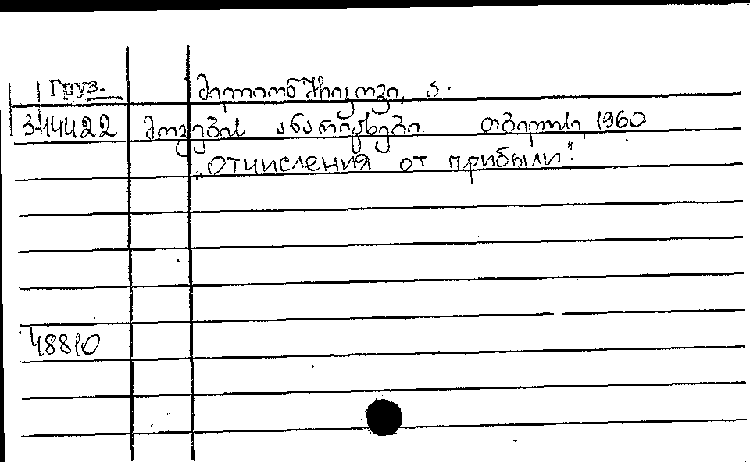 Груз. მილიონშჩიკოვი, ა.
3-14422 მოგების ანარიცხები თბილისი, 1960
„Отчисления от прибыли".
48810